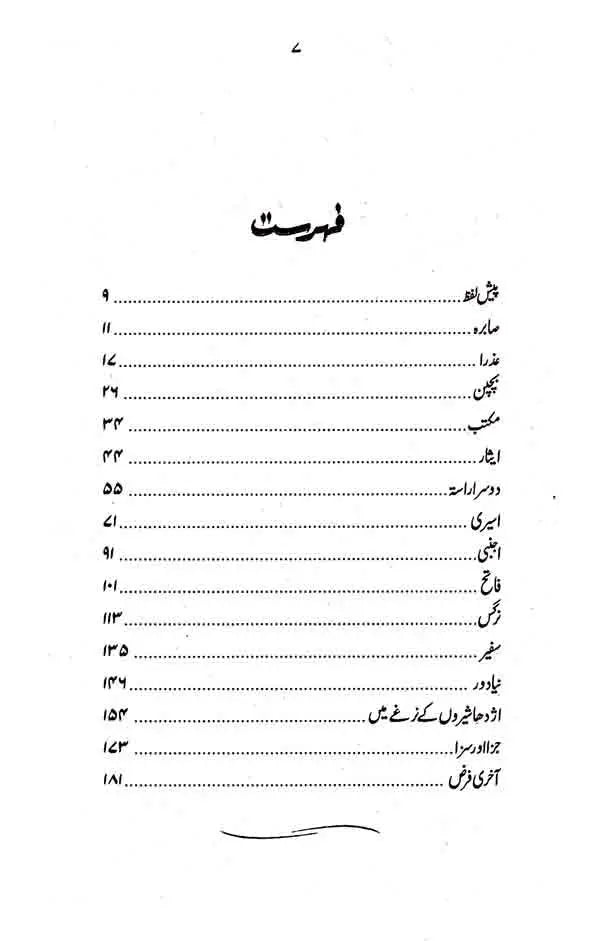 ۷
فہرست
پیش لفظ ........ ۹
صابرہ ........ ۱۱
عذرا ........ ۱۷
بچپن ........ ۲۶
مکتب ........ ۳۴
ایثار ........ ۴۴
دوسرا راستہ ........ ۵۵
اسیری ........ ۷۱
اجنبی ........ ۹۱
فاتح ........ ۱۰۱
نرگس ........ ۱۱۳
سفیر ........ ۱۳۵
نیا دور ........ ۱۴۶
اژدھا شیروں کے نرغے میں ........ ۱۵۴
جزا اور سزا ........ ۱۷۳
آخری فرض ........ ۱۸۱